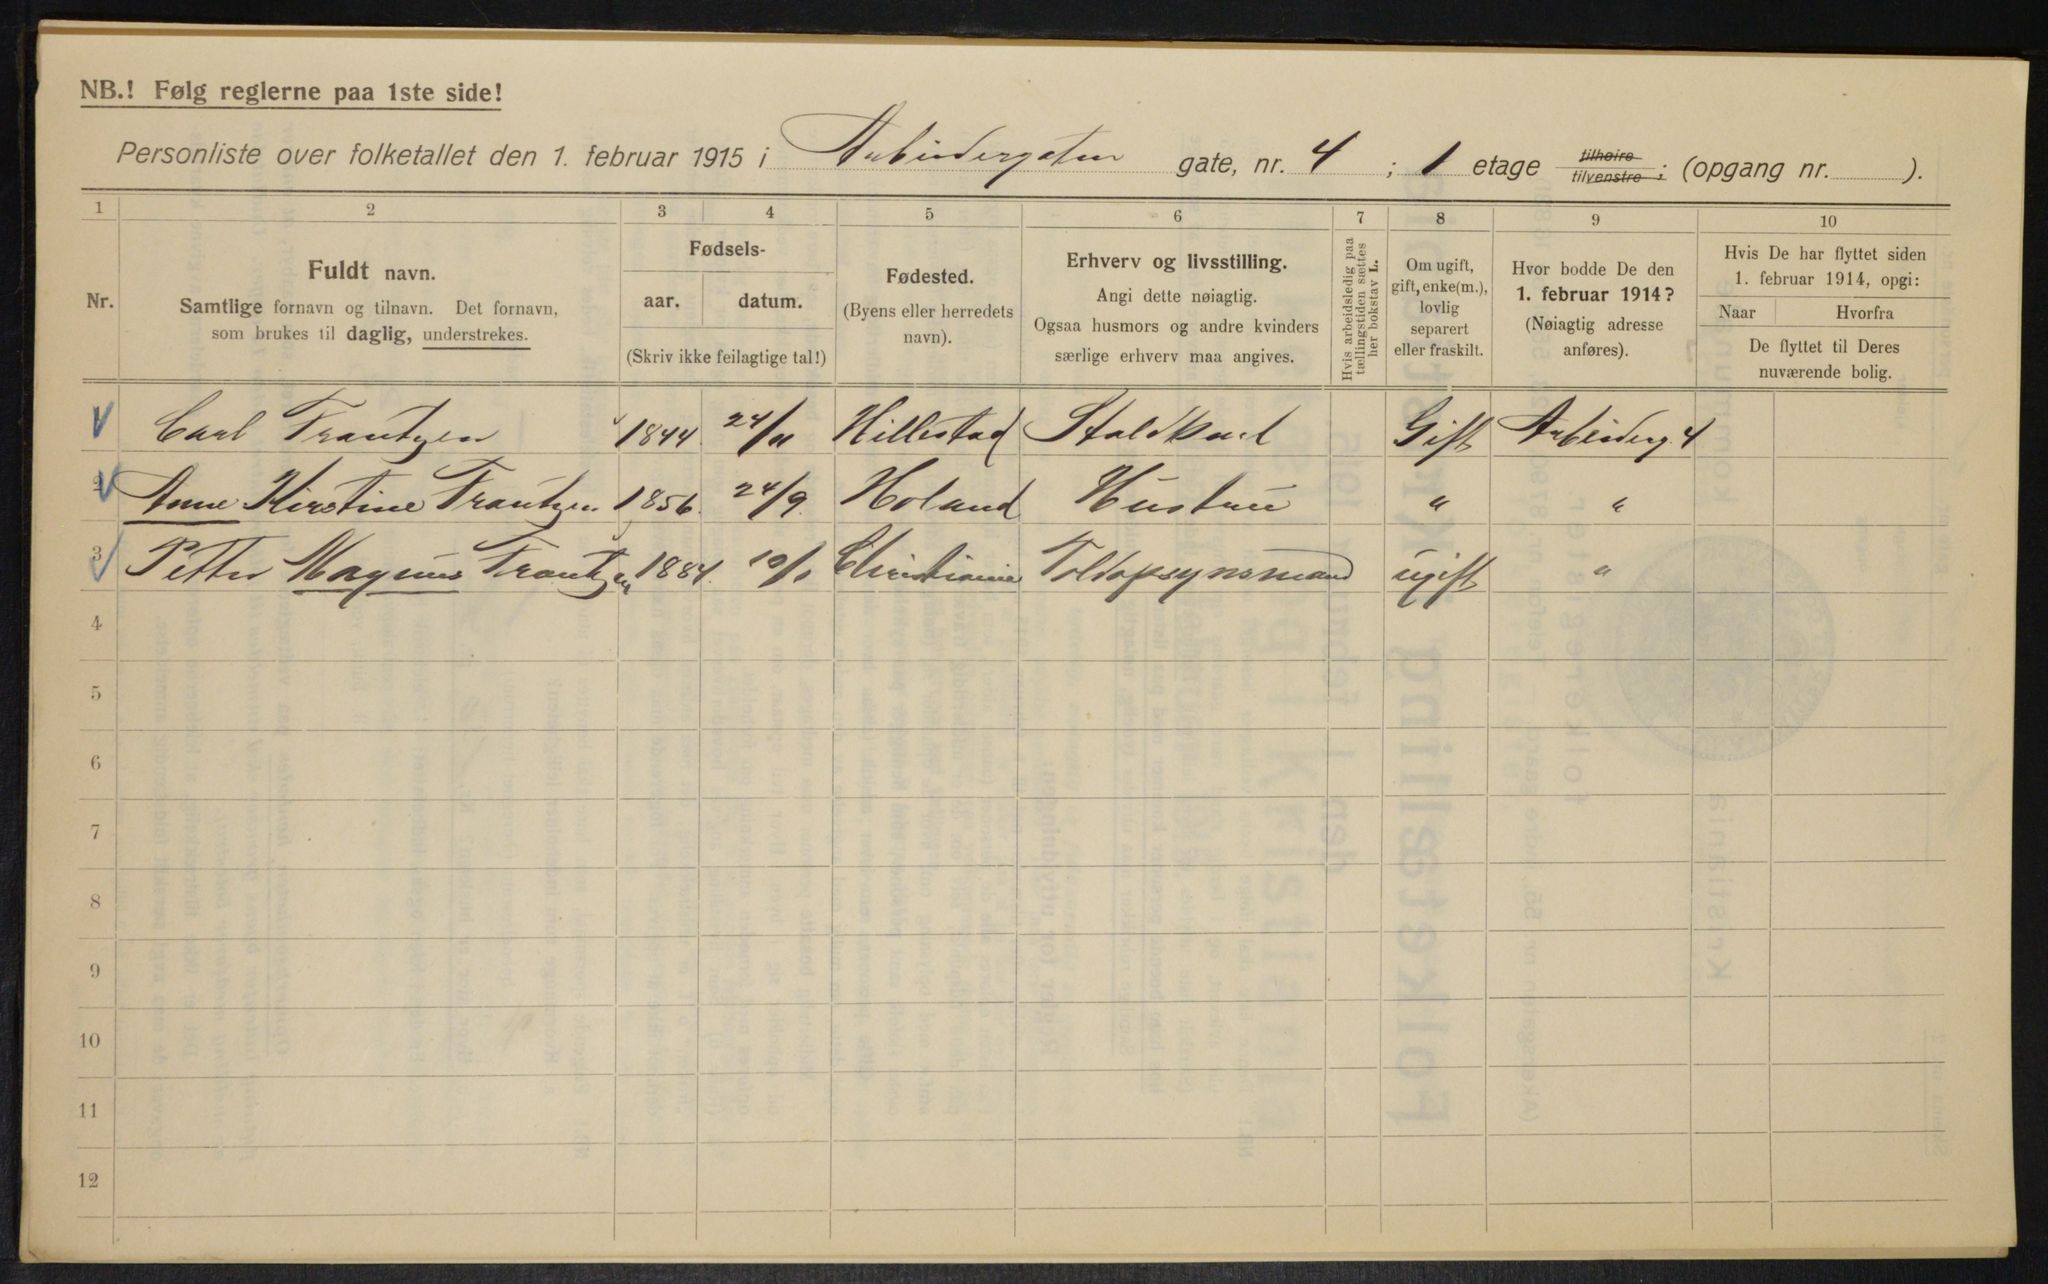 NB.! Følg reglerne paa 1ste side!
Personliste over folketallet den 1. februar 1915 i Arbeidergaten gate, nr. 4 ; 1 etage tilhøire tilvenstre ; (opgang nr. ).
1 2 3 4 5 6 7 8 9 10
Nr.
Fuldt navn.
Samtlige fornavn og tilnavn. Det fornavn,
som brukes til daglig, understrekes.
Fødsels-
aar. datum.
(Skriv ikke feilagtige tal!)
Fødested.
(Byens eller herredets
navn).
Erhverv og livsstilling.
Angi dette nøiagtig.
Ogsaa husmors og andre kvinders
særlige erhverv maa angives.
Hvis arbeidsledig paa
tællingstiden sættes
her bokstav L.
Om ugift,
gift, enke(m.),
lovlig
separert
eller fraskilt.
Hvor bodde De den
1. februar 1914?
(Nøiagtig adresse
anføres).
Hvis De har flyttet siden
1. februar 1914, opgi:
Naar Hvorfra
De flyttet til Deres
nuværende bolig.
Carl Frantzen 1844 24/11 Hillestad Staldkarl Gift Arbeiderg. 4
2 Anne Kirstine Frantzen 1856. 24/9. Holand Hustru " "
3 Petter Magnus Frantzen 1884. Christiania Toldopsynsmand ugift "
4
5
6
7
8
9
10
11
12